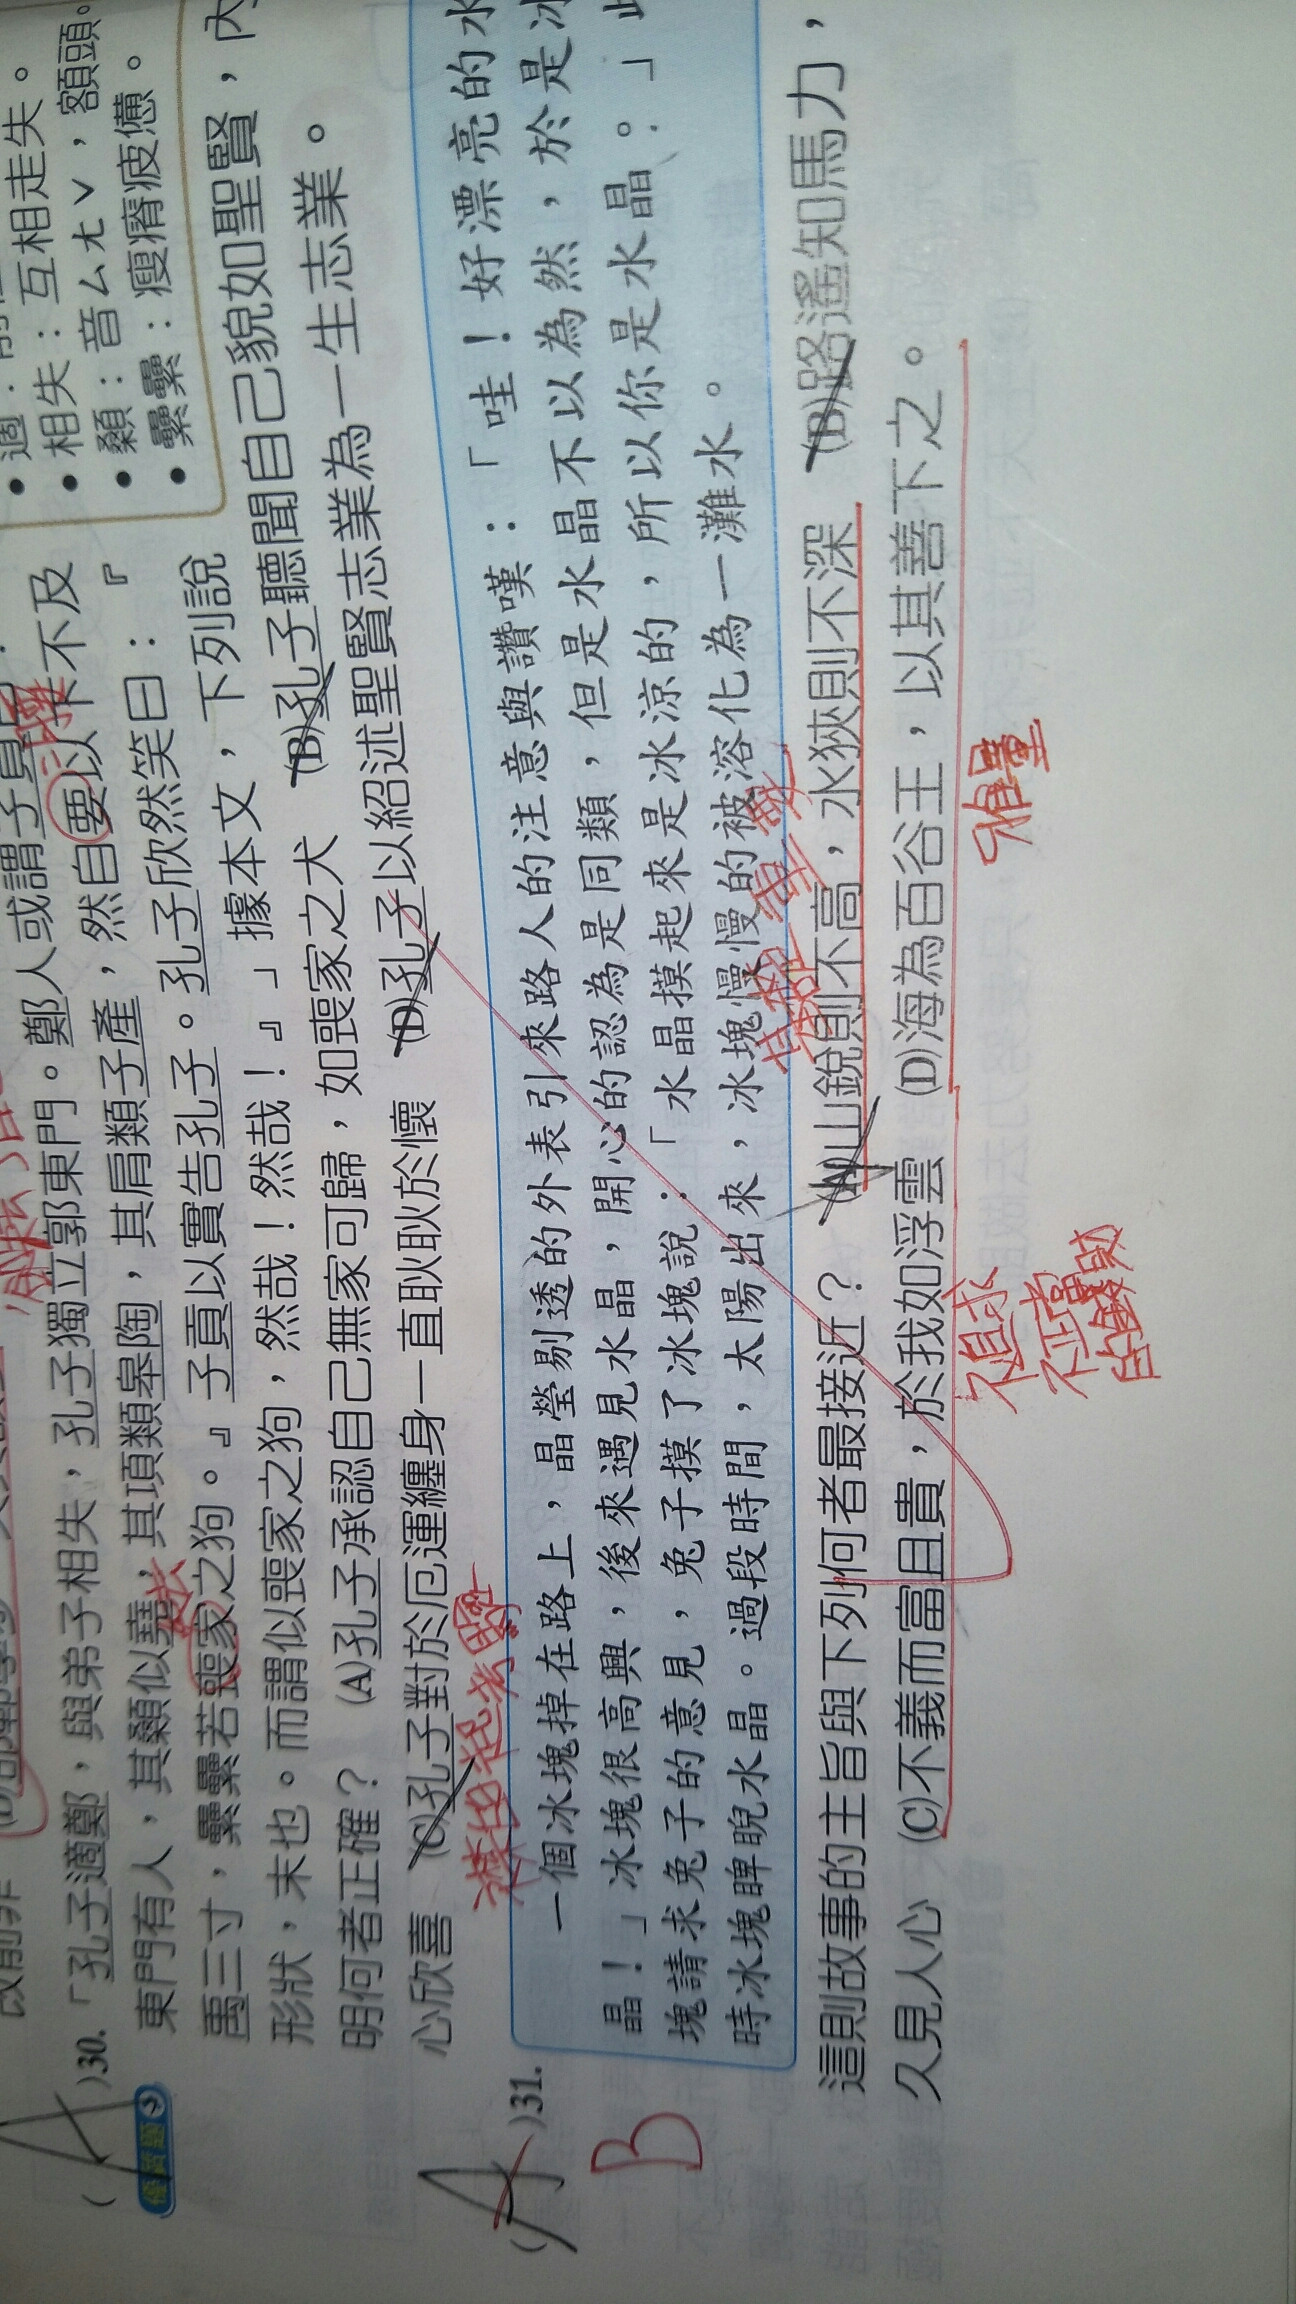 相失：互相走失。
顙：音ㄙㄤˇ，額頭。
纍纍：瘦瘠疲憊。
A
( )30.「孔子適鄭，與弟子相失，孔子獨立郭東門。鄭人或謂子貢曰：
東門有人，其顙似堯，其項類皋陶，其肩類子產，然自要以下不及
禹三寸，纍纍若喪家之狗。』子貢以實告孔子。孔子欣然笑曰：『
形狀，末也。而謂似喪家之狗，然哉！然哉！』」據本文，下列說
明何者正確？ (A)孔子承認自己無家可歸，如喪家之犬 (B)孔子聽聞自己貌如聖賢，內
心欣喜 (C)孔子對於厄運纏身一直耿耿於懷 (D)孔子以紹述聖賢志業為一生志業。
優質題
A
B
( )31.
一個冰塊掉在路上，晶瑩剔透的外表引來路人的注意與讚嘆：「哇！好漂亮的水
晶！」冰塊很高興，後來遇見水晶，開心的認為是同類，但是水晶不以為然，於是冰
塊請求兔子的意見，兔子摸了冰塊說：「水晶摸起來是冰涼的，所以你是水晶。」此
時冰塊睥睨水晶。過段時間，太陽出來，冰塊慢慢的被溶化為一灘水。
這則故事的主旨與下列何者最接近？ (A)山銳則不高，水狹則不深 (B)路遙知馬力，
久見人心 (C)不義而富且貴，於我如浮雲 (D)海為百谷王，以其善下之。
不追求
不正當
的錢財
雅量